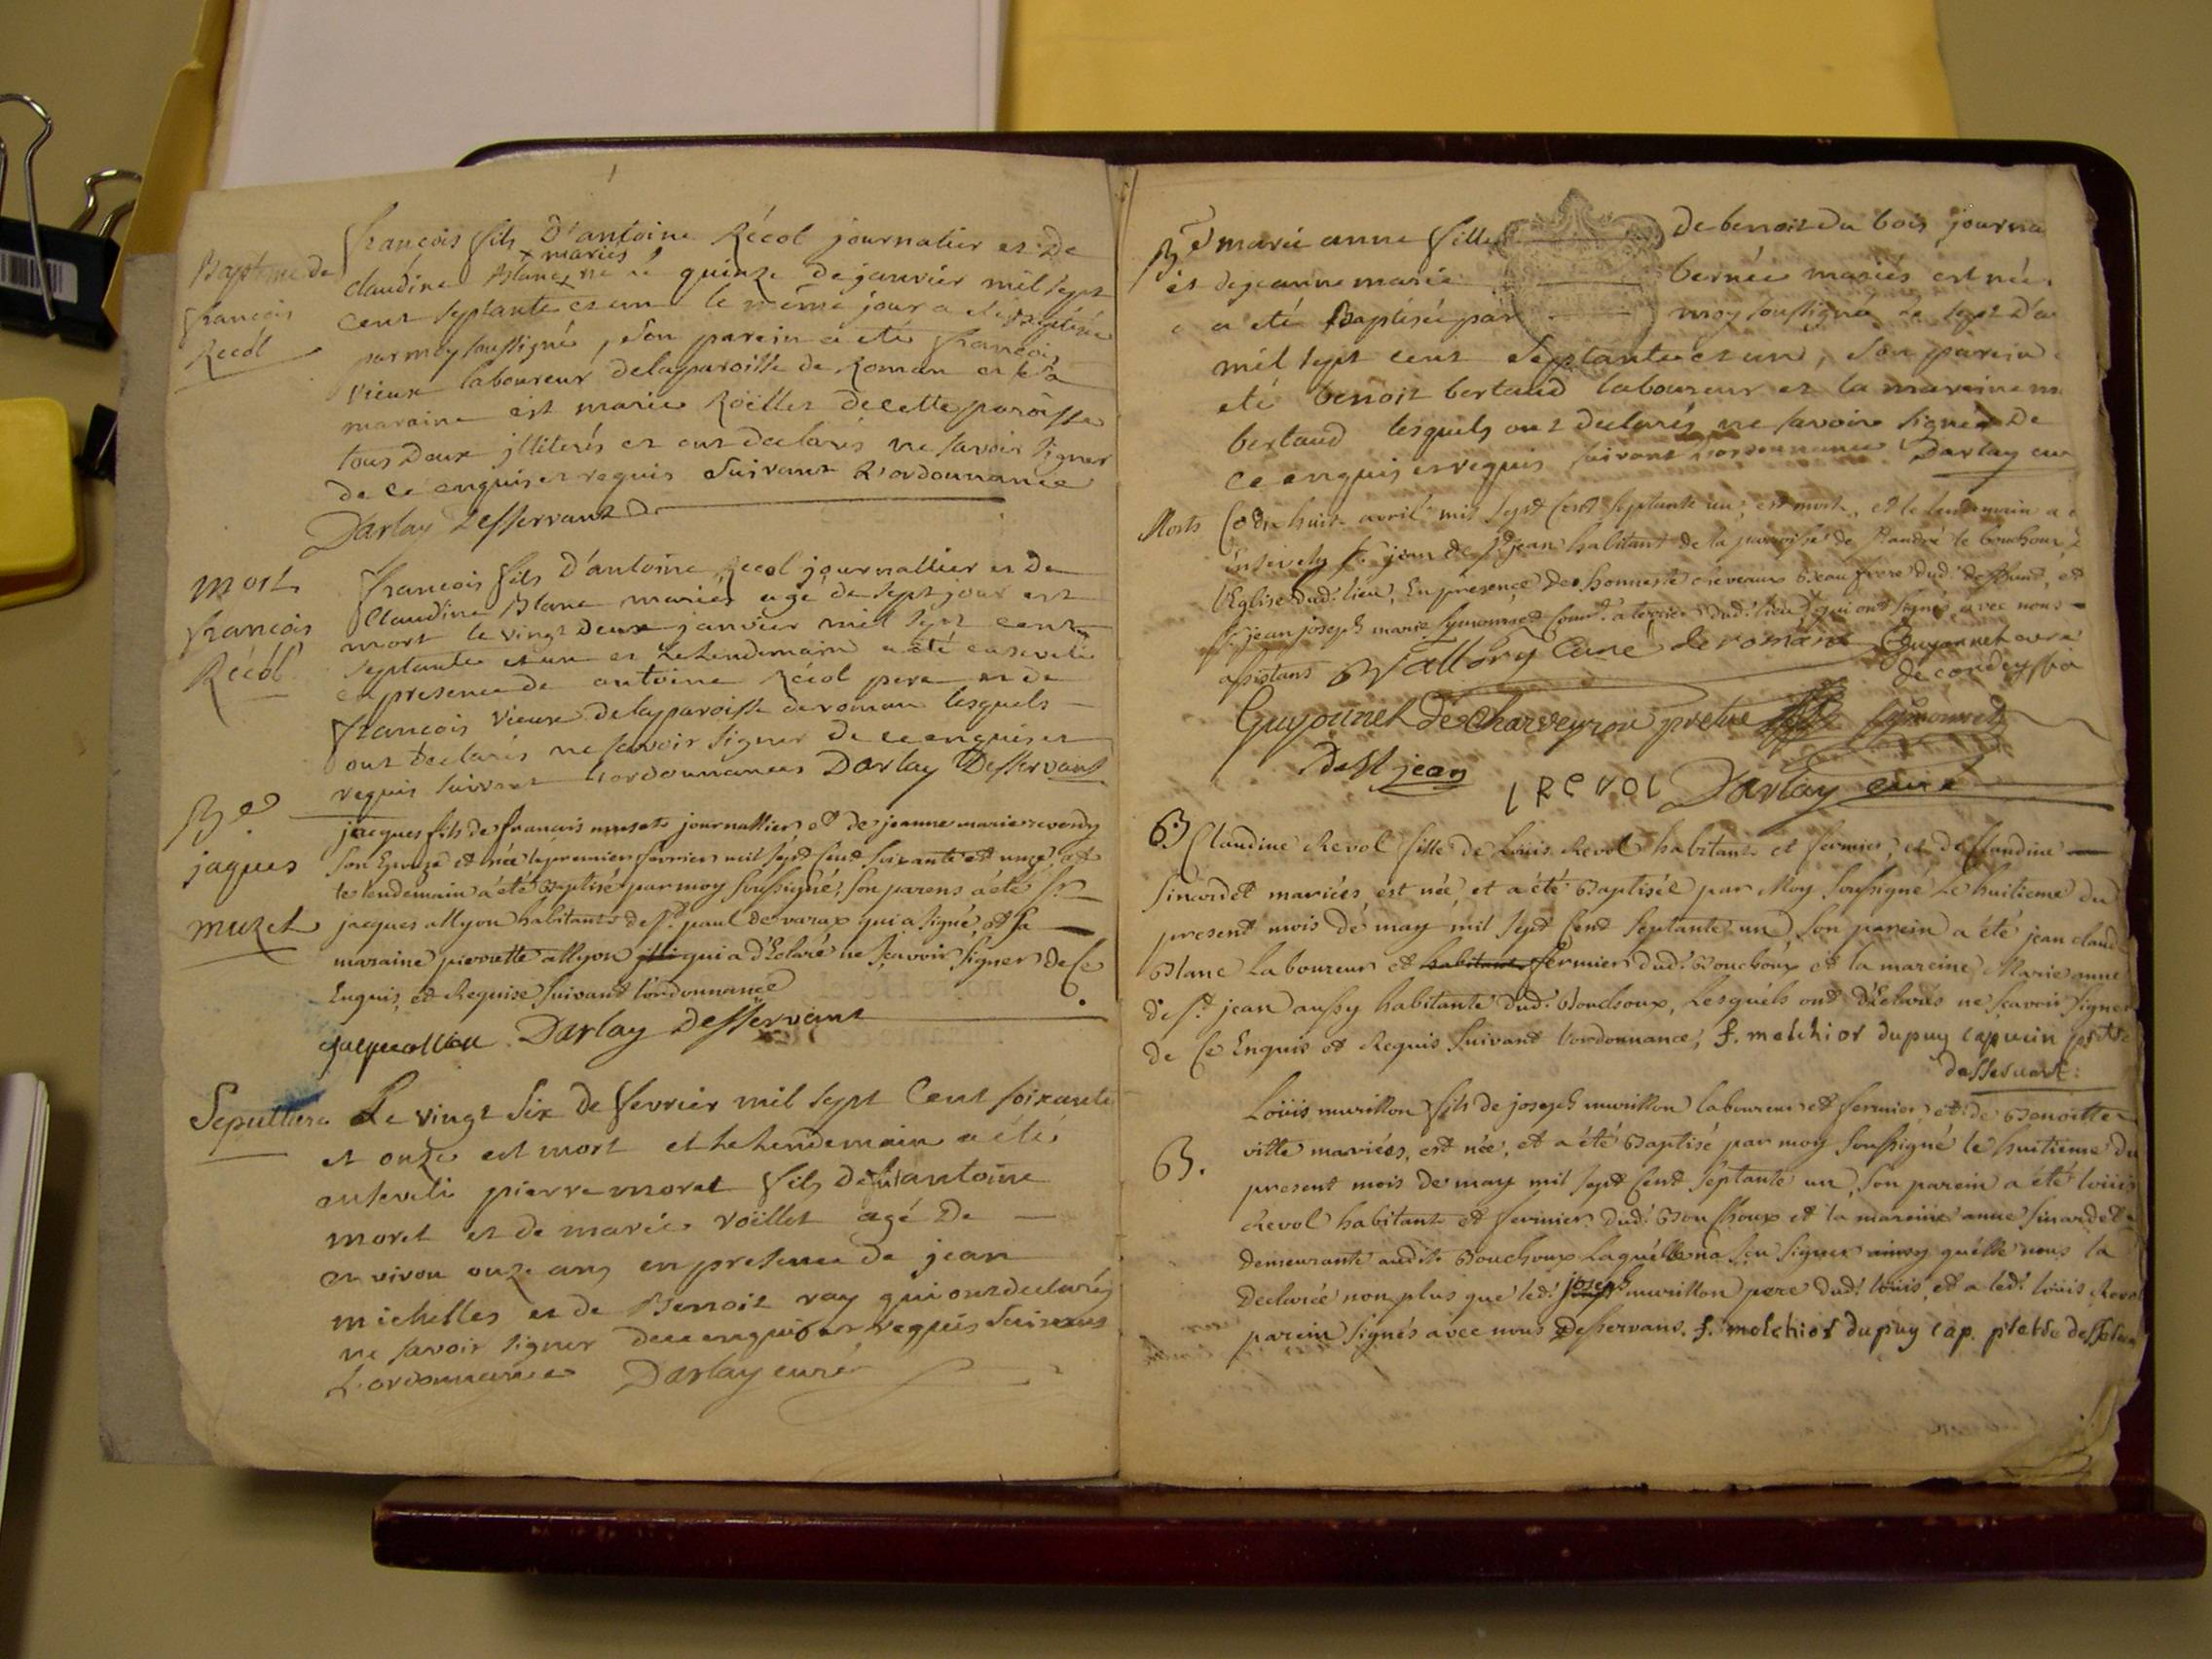 Baptême de
francois
Récol
françois fils D'antoine Récol journalier et De
x mariés
claudine Blanc x né le quinze de janvier mil sept
cent septante et un le même jour a été baptisé
par moy soussigné, son parein a été francois
vieux laboureur delaparoisse de Roman et sa
maraine est marie Roëllet decette paroisse
tous Deux illiterés et ont declarés ne savoir signer
de ce enquis et requis suivant L'ordonnance
Darlay Desservant
mort
francois
Récol
francois fils D'antoine Récol journallier et De
Claudine Blanc mariés agé de sept jour est
mort le vingt Deux janvier mil sept cent
septante et un et Lelendemain a été enseveli
en presence de antoine Récol pere et de
francois vieux delaparoisse de roman lesquels
ont declarés ne savoir signer de ce enquis et
requis suivant Lordonnances Darlay Desservant
Be
jaques
muzet
jacques fils de francois muset journallier et de jeanne marie
son Epouze est née le premier fevrier mil sept Cent soixante et unze, et
le lendemain a été Baptisé par moy soussigné, son parens a été sr
jacques allyon habitant de st paul de varax qui a signé, et sa
maraine pierrette allyon qui a dEclaré ne sçavoir signer de Ce
Enquis, et Requise suivant l'ordonnance
Darlay Desservant
Sepulture
Le vingt six de fevrier mil sept Cent soixante
et onze est mort et Lelendemain a été
enseveli pierre moret fils de antoine
moret et de marie roëllet agé De
environ onze ans en presence de jean
michelles et de Benoit ray qui ont declarés
ne savoir signer de ce enquis et requis suivant
L'ordonnance Darlay curé
Be marie anne fille de benoit Du bois journa
et de jeanne marie bernée mariés est née
a été Baptisée par moy soussigné le sept D'a
mil sept cent septante et un, son parein
été benoit bertaud laboureur et la maraine m
bertaud lesquels ont declarés ne savoir signer De
ce enquis et requis suivant L'ordonnance Darlay cu
Morts
Ce huit avril mil sept Cent septante un, est mort, et le lendemain a
Enseveli sr jean de st jean habitant de la paroisse de st andré le bouchoux
l'Eglise dud. lieu, En presence de honneste Beau frere dud. deffunt, et
sr jean joseph marie symonnet Comre a terrier dud. lieu qui ont signés avec nous
assistans Vallory Curé de romans Guyonnet curé
de condeyssia
Guyonnet De Charveyron pretre symonnet
De st jean l Revol Darlay curé
B
Claudine Revol fille de Loüis Revol habitant et fermier, et de Claudine
sinardet mariées, est née, et a été Baptisée par Moy soussigné Le huitieme du
present mois de may mil sept Cent septante un, son parein a été jean claud
Blanc Laboureur et habitant fermier dud. Bouchoux et la mareine Marie anne
de st jean aussy habitante dud. Bouchoux, Lesquels ont dEclarés ne sçavoir signer
de Ce Enquis et Requis suivant l'ordonnance, f. melchior dupuy capucin pretre
desservant.
B.
Loüis murillon fils de joseph murillon laboureur et fermier et de Benoitte
vitte mariées, est née, et a été Baptisé par moy soussigné le huitieme du
present mois de may mil sept Cent septante un, son parein a été loüis
Revol habitant et fermier dud. Bouchoux et la mareine anne sinardet
demeurante audit Bouchoux Laquelle na sçu signer ainsy qu'elle nous la
Declarée non plus que led. joseph murillon pere dud. loüis, et a led. loüis Revol
parein signés avec nous Desservans. f. melchior dupuy cap. pretre desser